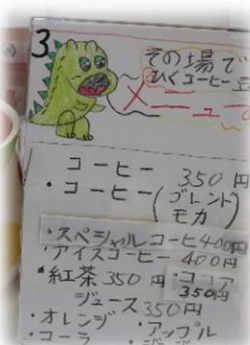 3
その場で
ひくコーヒー豆
メニュー
コーヒー 350円
・コーヒー(ブレンド
モカ
・スペシャルコーヒ400円
・アイスコーヒー 400円
・紅茶 350円 ・ココア
350円
ジュース 350円
・オレンジ ・アップル
・コーラ